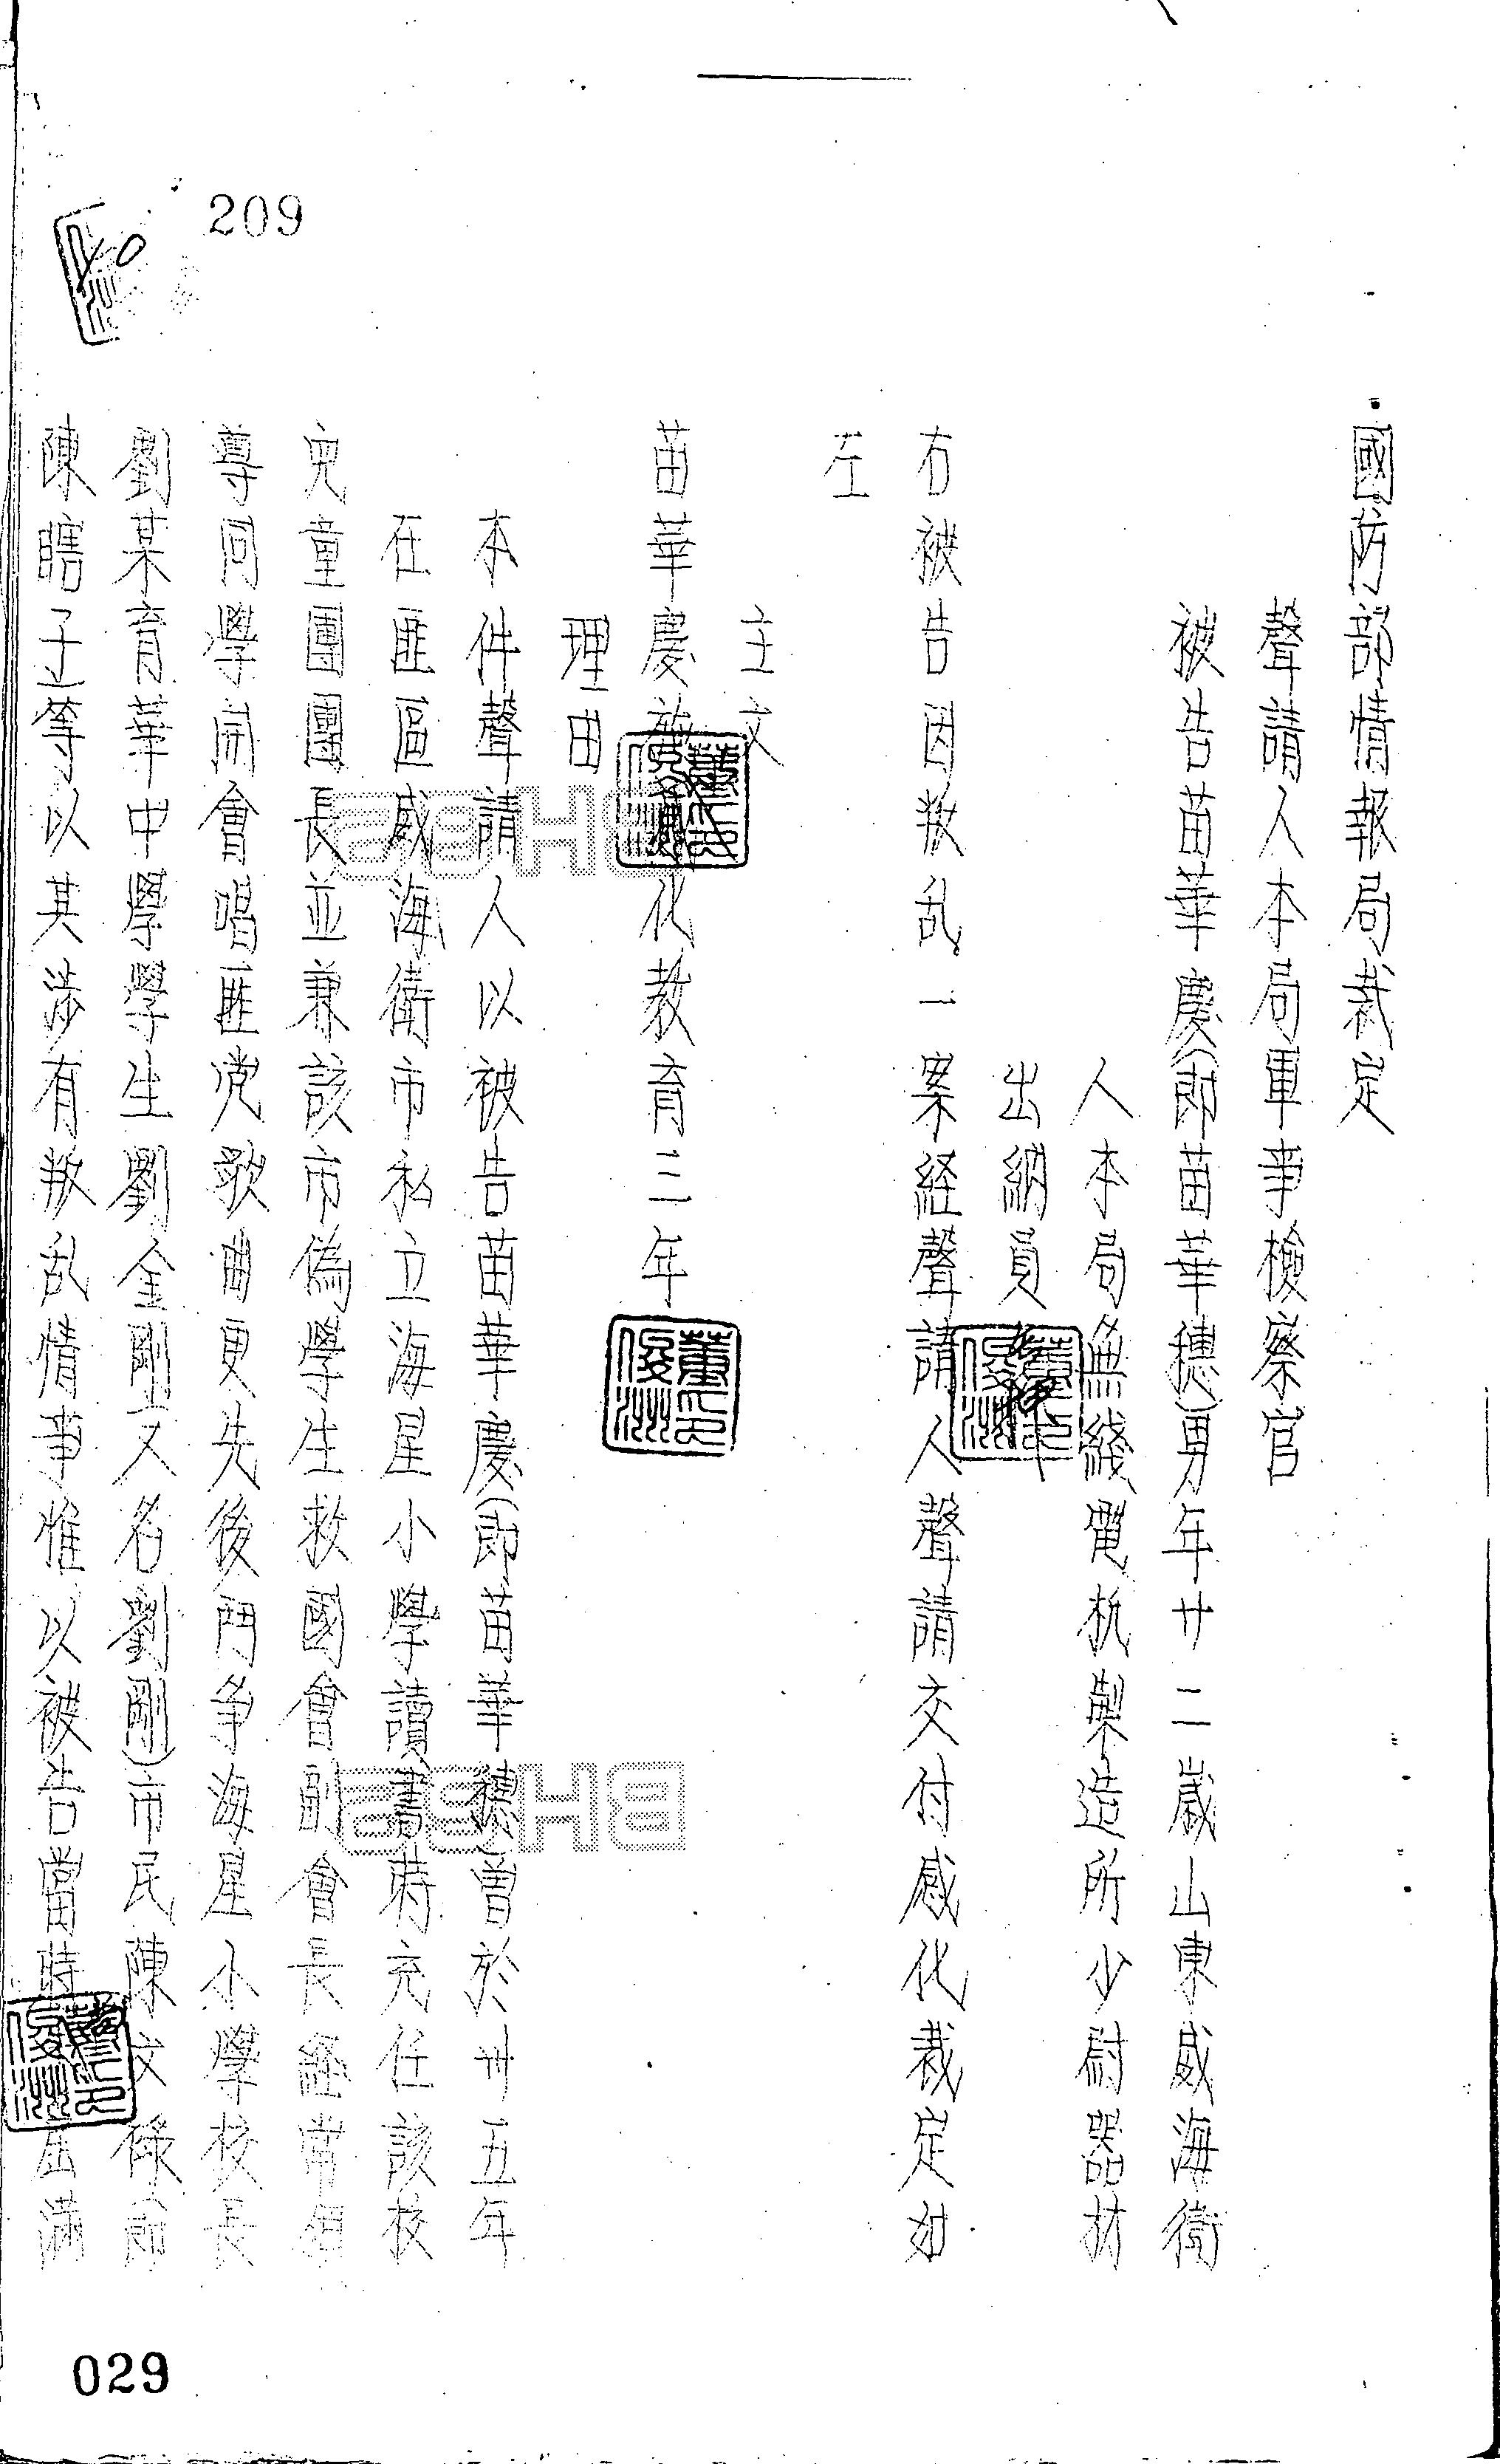 209
國防部情報局裁定
聲請人本局軍事檢察官
被告苗華慶(即苗華穗)男年廿二歲山東威海衛
人本局無綫電机製造所少尉器材
出納員
右被告因叛乱一案経聲請人聲請交付感化裁定如
左
主文
苗華慶 化教育三年
理由
本件聲請人以被告苗華慶(即苗華穗)曾於卅五年
在匪區威海衛市私立海星小學讀書時充任該校
兒童團團長並兼該市偽學生救國會副會長経常領
導同學開會唱匪党歌曲更先後鬥争海星小學校長
劉某育華中學學生劉金剛(又名劉剛)市民陳文祿(即
陳瞎子)等以其涉有叛乱情事惟以被告當時 滿
029